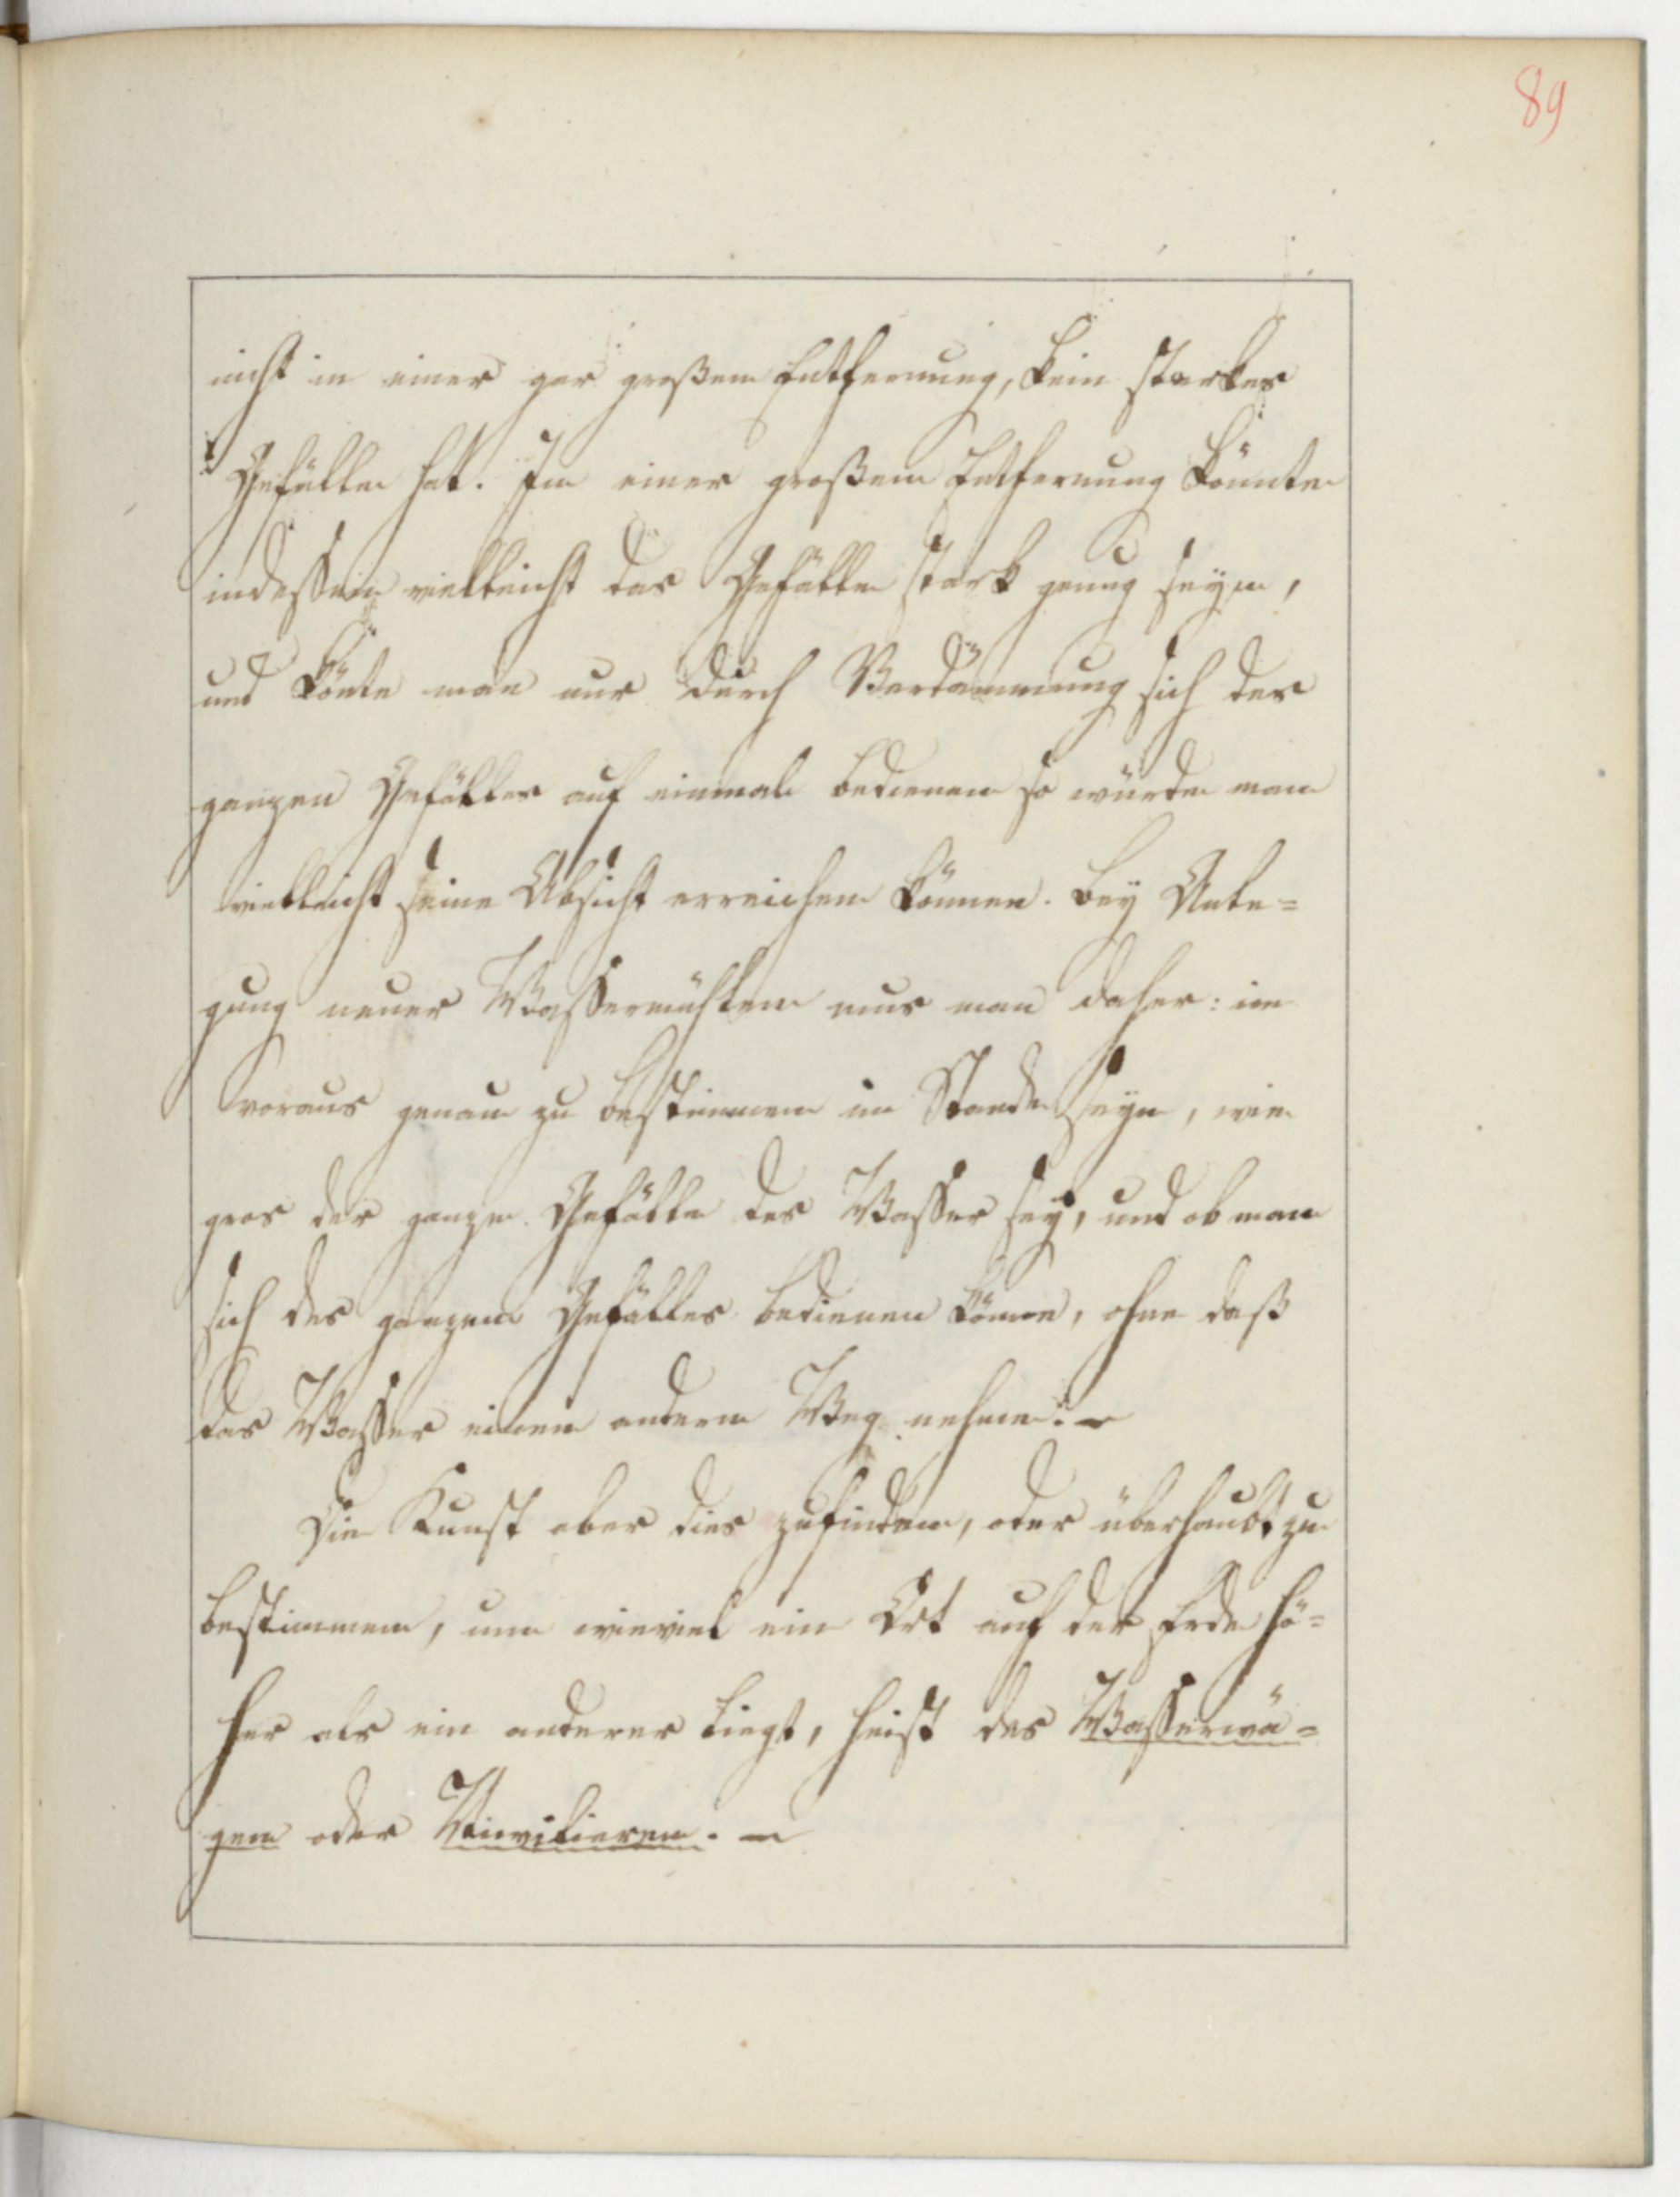 89
nicht in einer gar großen Entfernung, kein starkes
Gefälle hat. In einer großen Entfernung könnte
indessen vielleicht das Gefälle stark genug seyn,
und könte man nur durch Verdämmung sich des
ganzen Gefälles auf einmal bedienen so würde man
vielleicht seine Absicht erreichen können. Bey Anle=
gung neuer Wassermühlen mus man daher: im
voraus genau zu bestimmen im Stande seyn, wie
gros der ganze Gefälle des Wasser sey, und ob man
sich des ganzen Gefälles bedienen könne, ohne daß
das Wasser einen andern Weg nehme. –
Die Kunst aber dies zufinden, oder überhaubt zu
bestimmen, um wieviel ein Ort auf der Erde hö=
her als ein anderer liegt, heist das Wasserwä=
gen oder Nivilieren. –